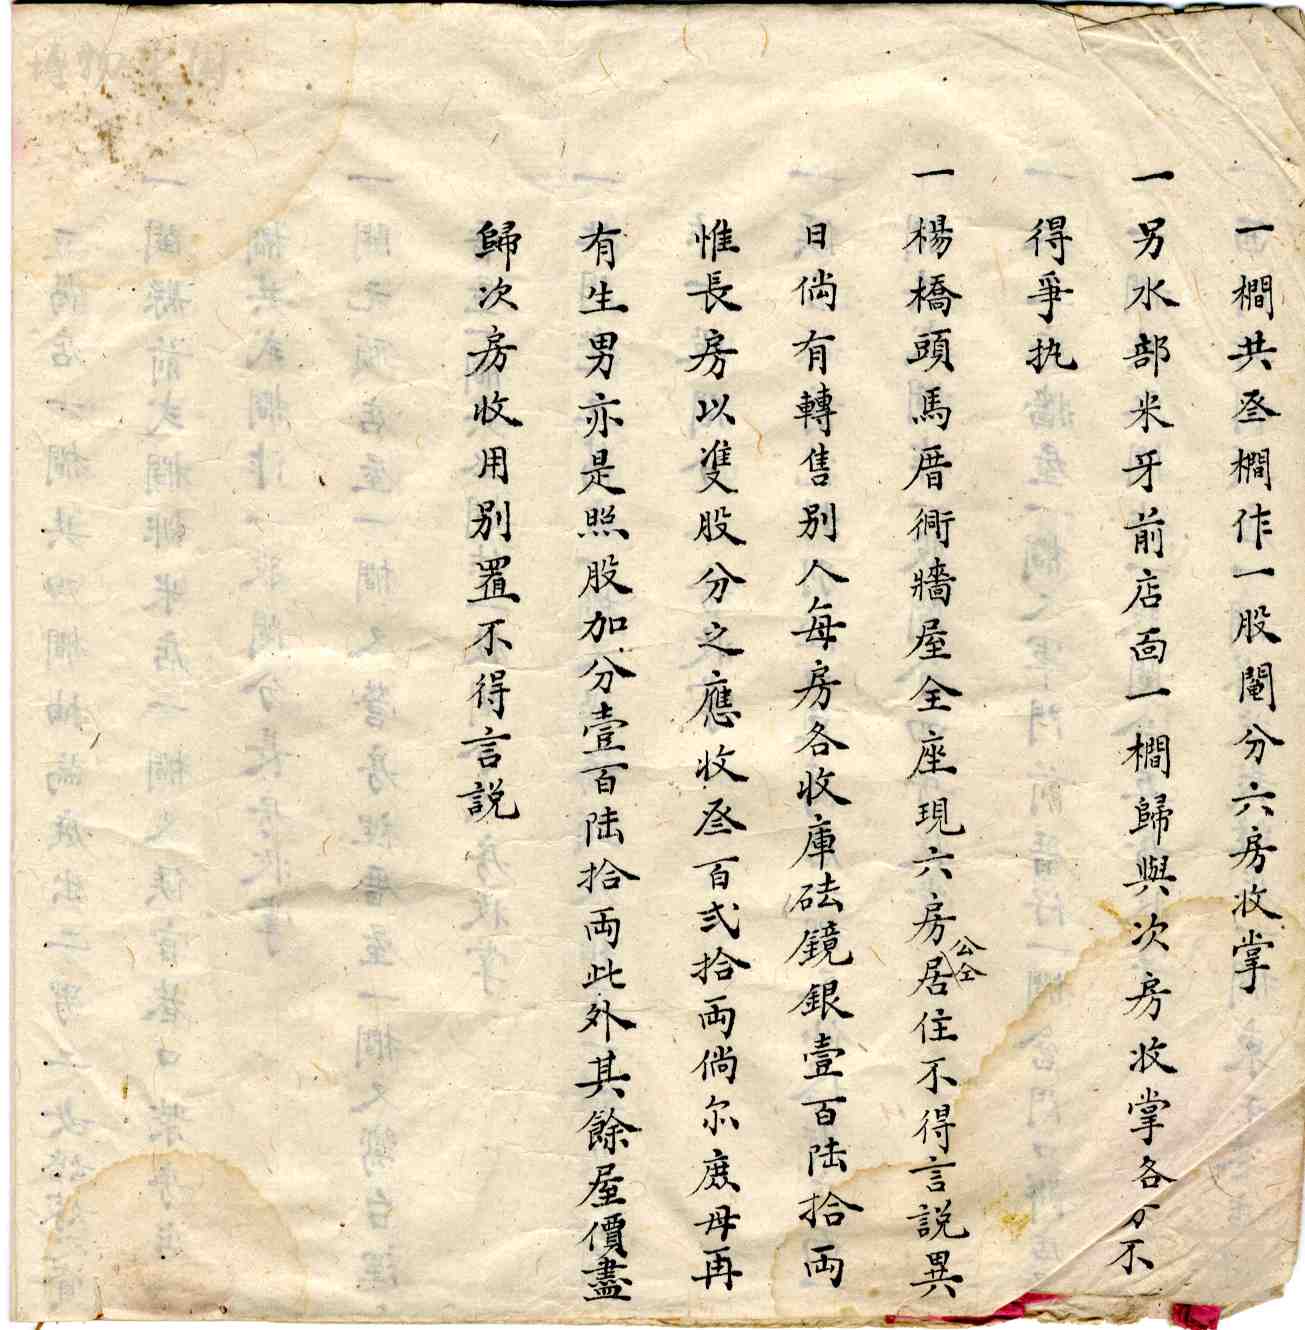 一橺共叁橺作一股鬮分六房收掌
一另水部米牙前店面一橺歸與次房收掌各分不
得爭执
一楊橋頭馬厝衕牆屋全座現六房公仝居住不得言說異
日倘有轉售别人每房各收庫砝鏡銀壹百陆拾両
惟長房以雙股分之應收叁百弍拾両倘尔庶母再
有生男亦是照股加分壹百陆拾両此外其餘屋價盡
歸次房收用别置不得言説